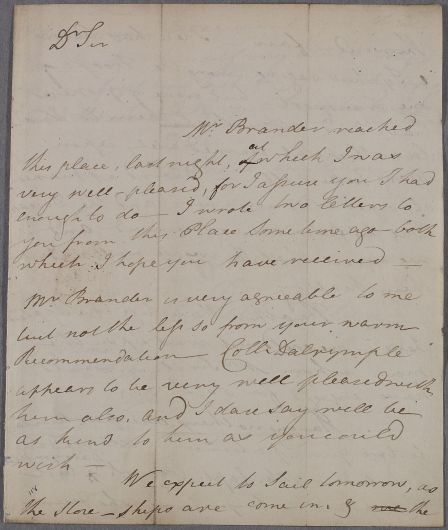 Dr Sir
Mr Brander reached
this place, last night, at which I was
very well pleased, for I assure you I had
enough to do — I wrote two letters to
you from this Place some time ago both
which I hope you have received —
Mr Brander is very agreeable to me
but not the less so from your warm
Recommendation Coll: Dalrymple
appears to be very well pleased with
him also, and I dare say will be
as kind to him as you could
wish —
We expect to Sail tomorrow, as
the Store-ships are come in; & the